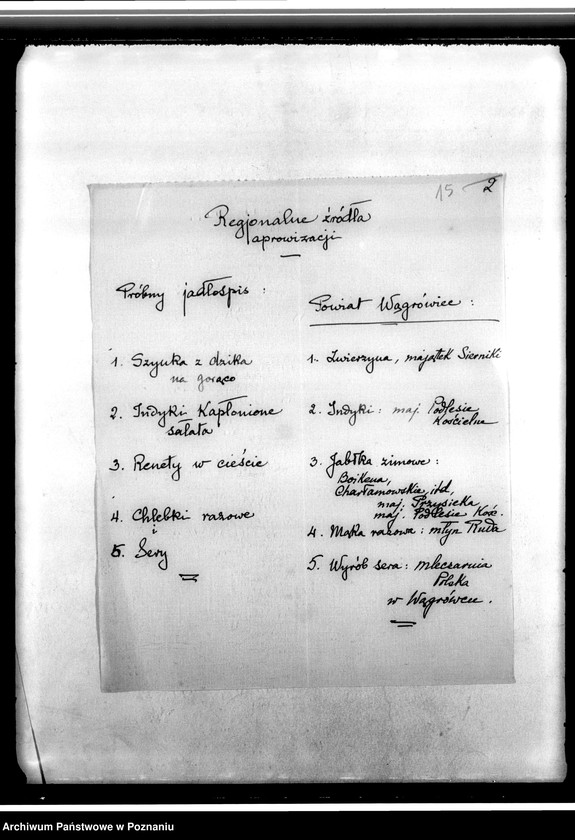 15 2
Regjonalne źródła
aprowizacji
Próbny jadłospis :
1. Szynka z dzika
na gorąco
2. Indyki Kapłonione
sałata
3. Renety w cieście
4. Chlebki razowe
i
5. Sery
Powiat Wągrówiec :
1. Zwierzyna, majątek Sierniki
2. Indyki : maj. Podlesie
Kościelne
3. Jabłka zimowe :
Boikena,
Charłamowskie, itd,
maj. Przysieka,
maj. Podlesie Kość.
4. Mąka razowa : młyn Ruda
5. Wyrób sera : mleczarnia
Polska
w Wągrówcu.
Archiwum Państwowe w Poznaniu